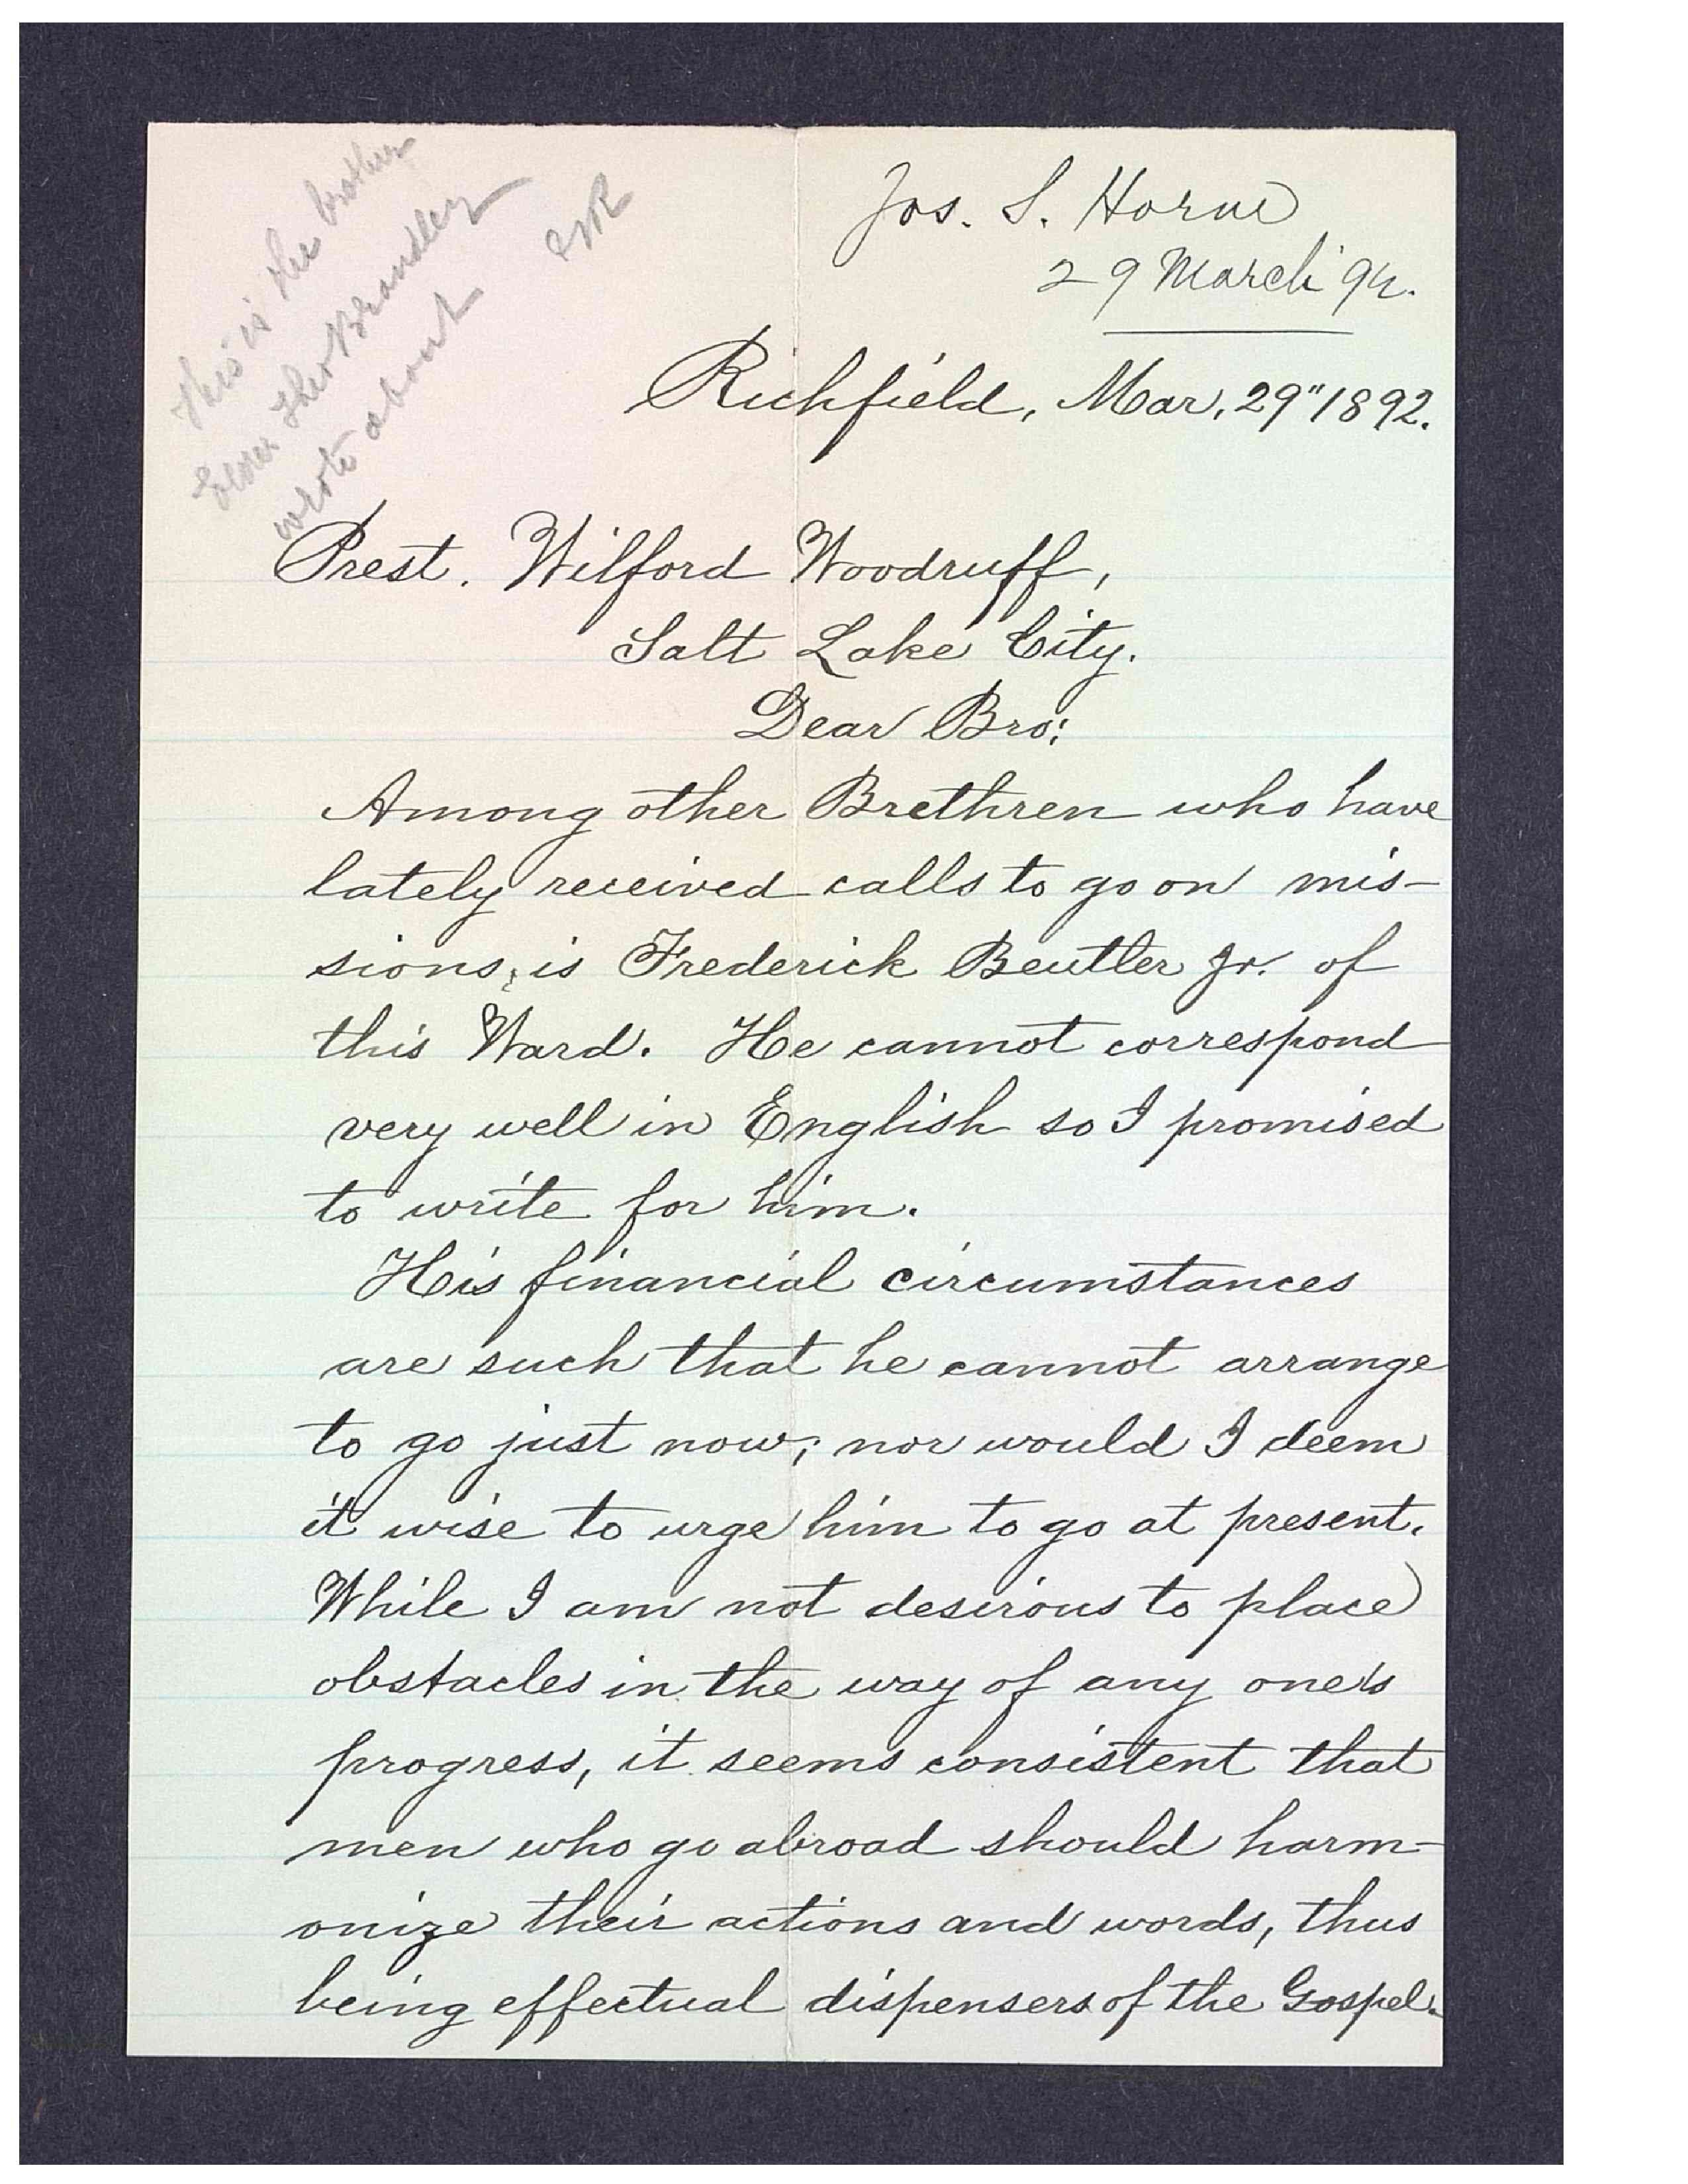 This is the brother
Elder Theo Brandley
wrote about
Jos. S. Horne
29 March '92.
Richfield, Mar, 29" 1892.
Prest. Wilford Woodruff,
Salt Lake City.
Dear Bro:
Among other Brethren who have
lately received calls to go on mis-
sions, is Frederick Beutler Jr. of
this Ward. He cannot correspond
very well in English so I promised
to write for him.
His financial circumstances
are such that he cannot arrange
to go just now; nor would I deem
it wise to urge him to go at present.
While I am not desirous to place
obstacles in the way of any one's
progress, it seems consistent that
men who go abroad should harm-
onize their actions and words, thus
being effectual dispensers of the Gospel.